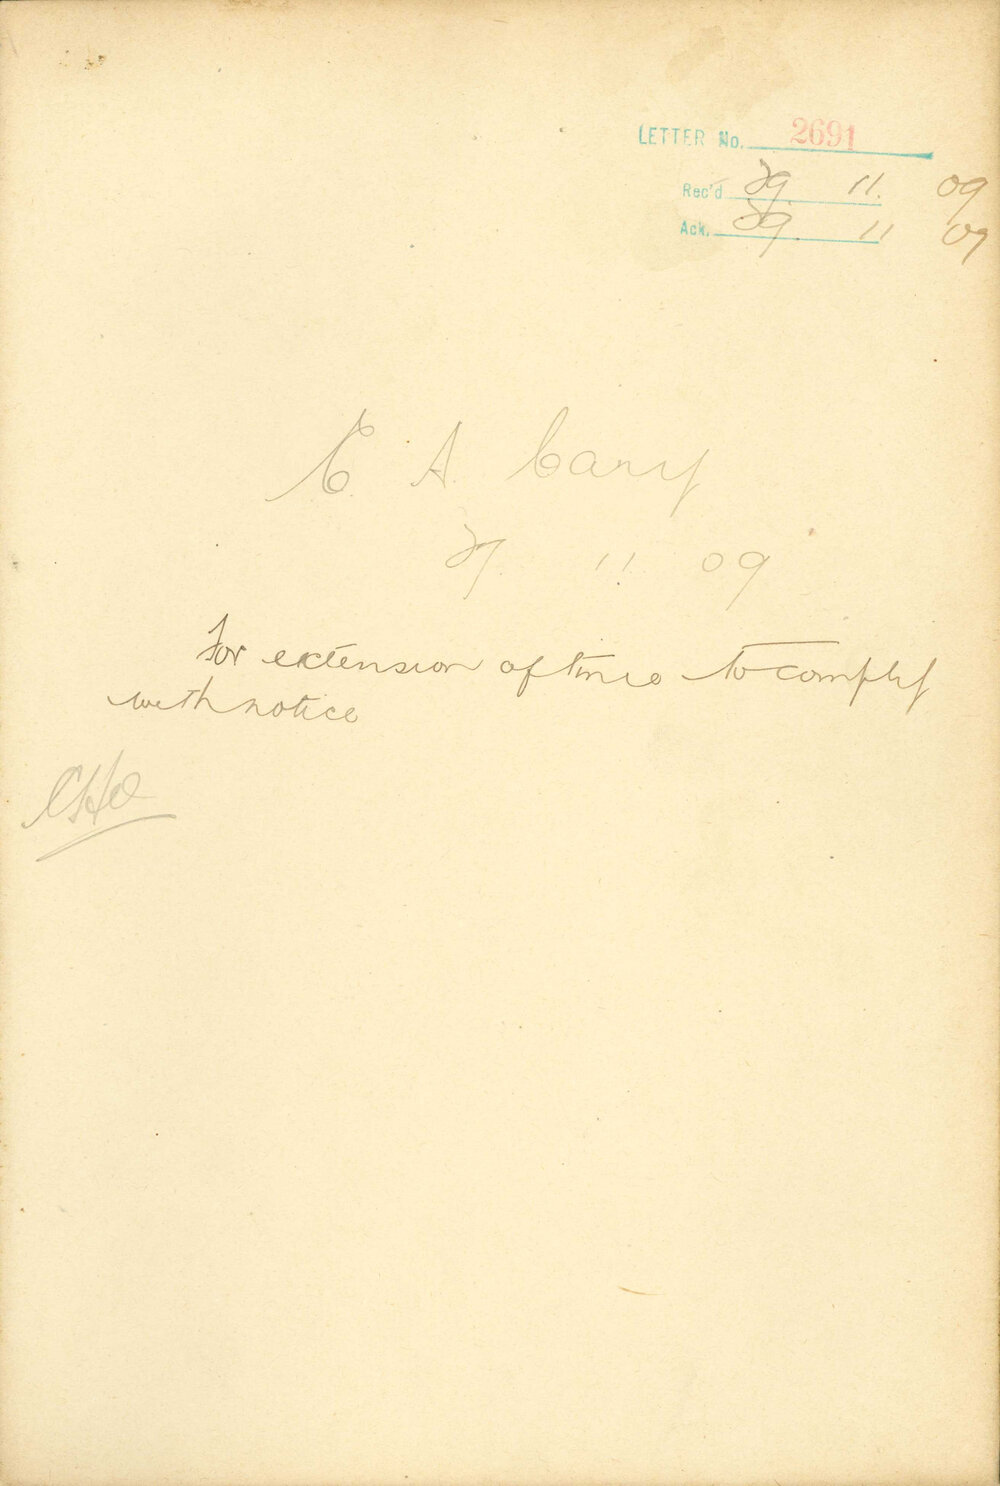 LETTER No. 2691
Rec'd 29. 11. 09
Ack. 29. 11 09
E. A. Cary
29. 11. 09
For extension of time to comply
with notice